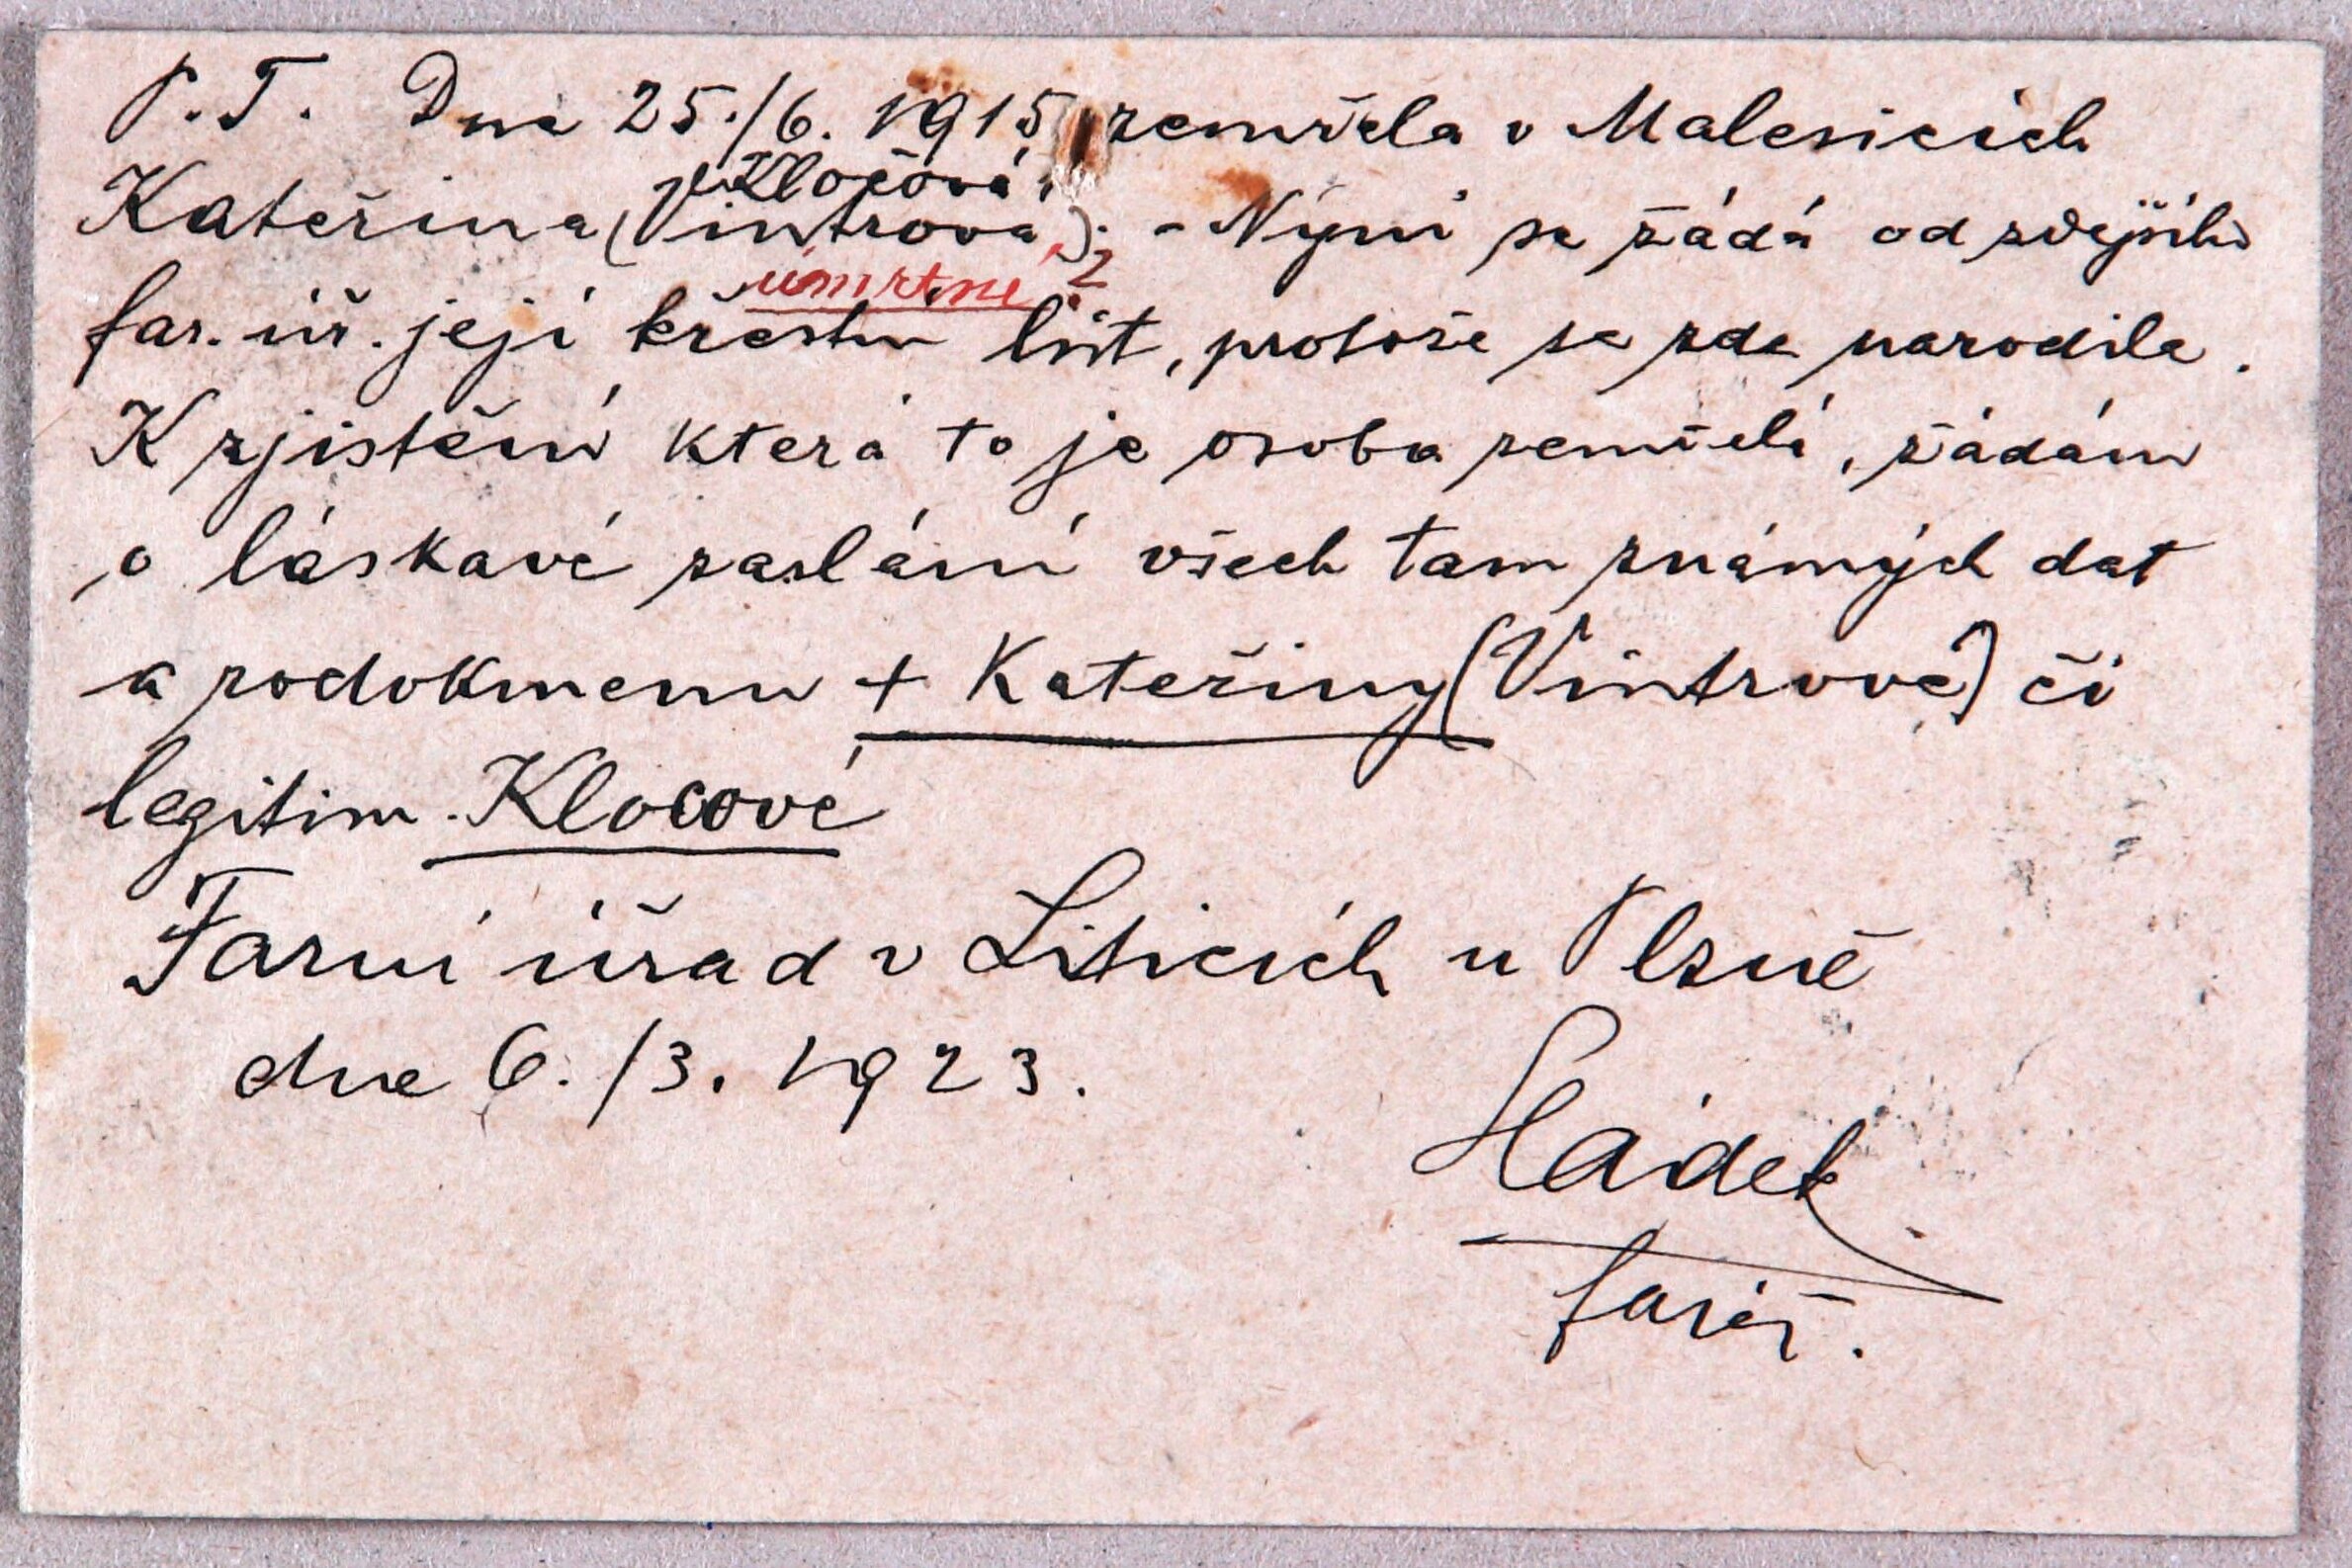 P.T. Dne 25./6. 1915 zemřela v Malesicích
Klocová
Kateřina (Vintrová). - Nyní se žádá od zdejšího
úmrtní ?
far. úř. její křestní list, protože se zde narodila.
K zjištění která to je osoba zemřelá, žádám
o láskavé zaslání všech tam známých dat
a rodokmenu + Kateřiny (Vintrové) či
legitim. Klocové
Farní úřad v Liticích u Plzně
dne 6./3. 1923.
Hádek
farář.